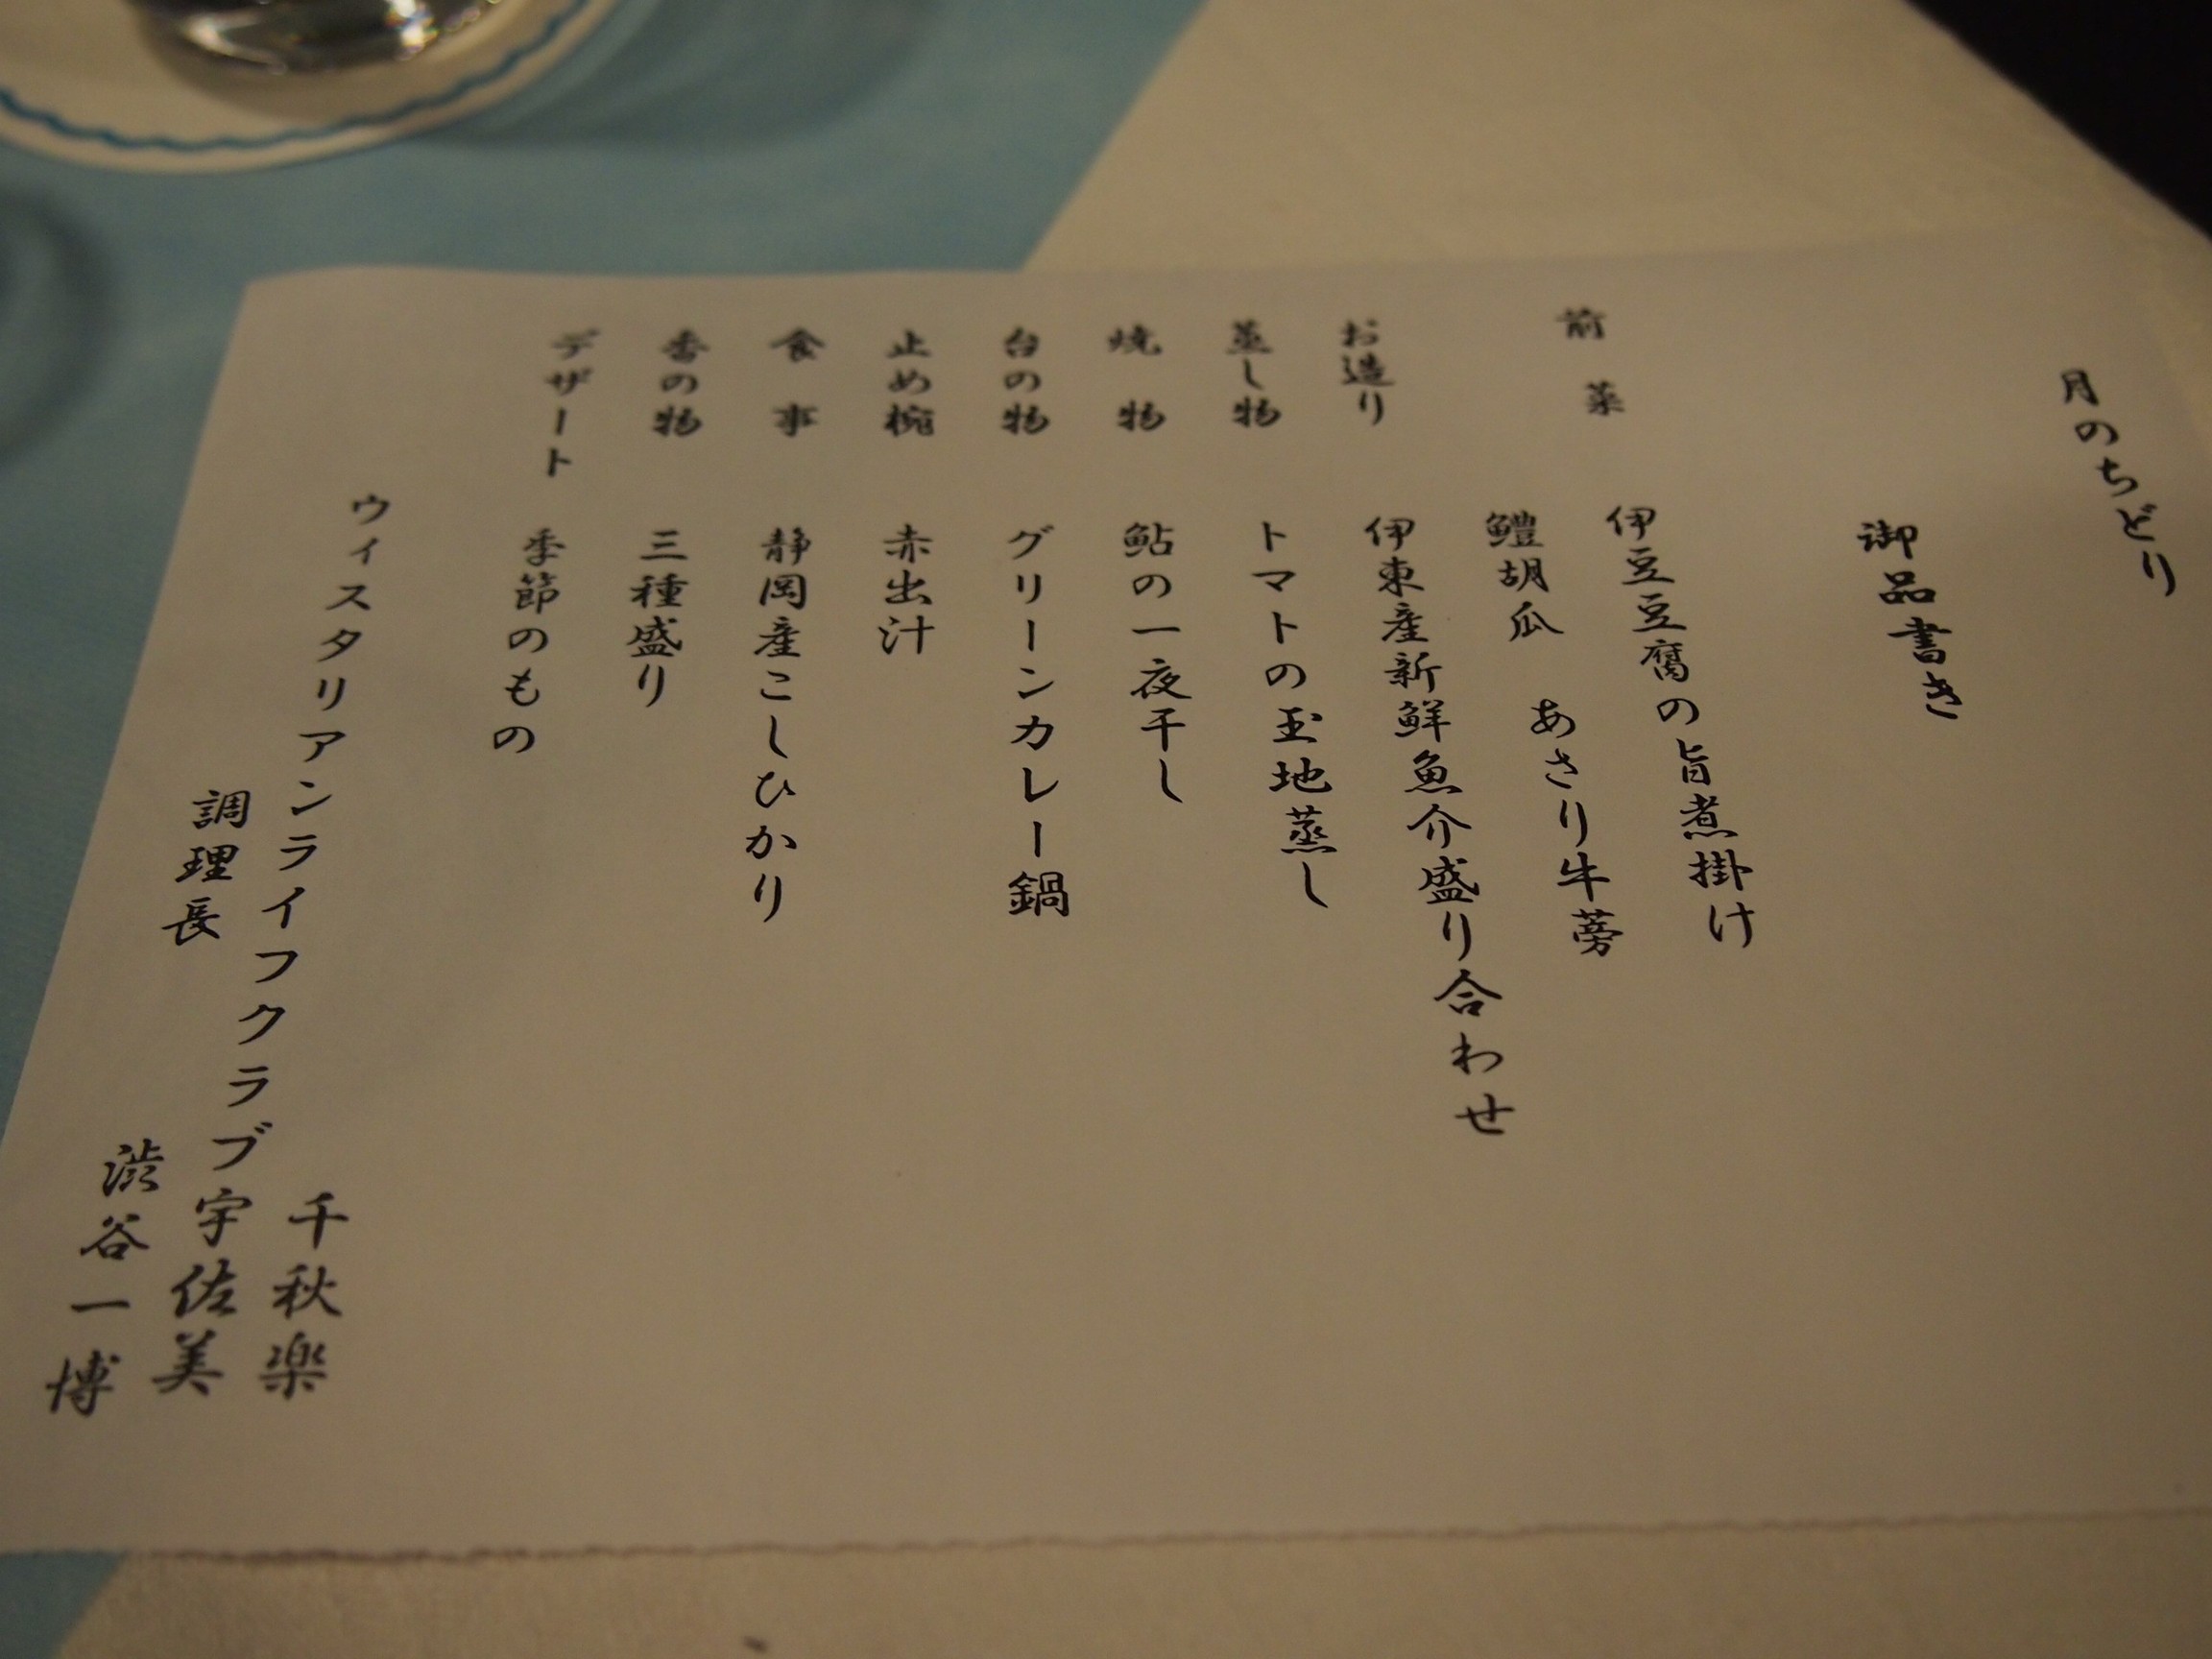 月のちどり
御品書き
前菜 伊豆豆腐の旨煮掛け
鱧胡瓜 あさり牛蒡
お造り 伊東産新鮮魚介盛り合わせ
蒸し物 トマトの玉地蒸し
焼物 鮎の一夜干し
台の物 グリーンカレー鍋
止め椀 赤出汁
食事 静岡産こしひかり
香の物 三種盛り
デザート 季節のもの
千秋楽
ウィスタリアンライフクラブ宇佐美
調理長 渋谷一博